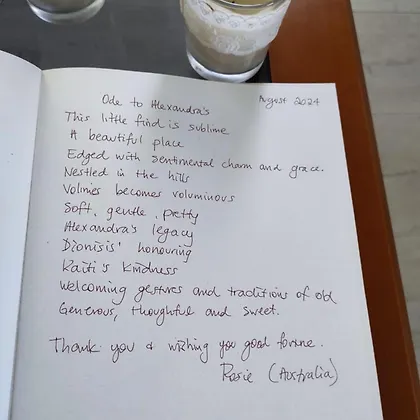 Ode to Alexandra's
August 2024
This little find is sublime
A beautiful place
Edged with sentimental charm and grace.
Nestled in the hills
Volmies becomes voluminous
Soft, gentle, pretty
Alexandra's legacy
Dionisis' honouring
Kaiti's kindness
Welcoming gestures and traditions of old
Generous, thoughtful and sweet.
Thank you & wishing you good fortune.
Rosie (Australia)